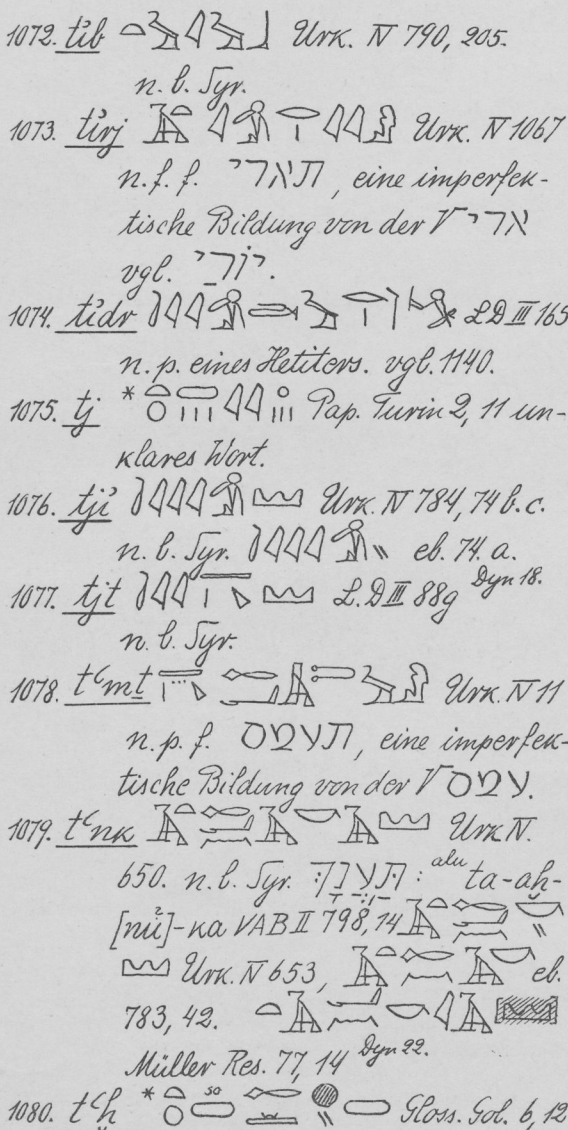 1072. tỉb Urk. IV 790, 205.
n. l. Syr.
1073. tỉrj Urk. IV 1067
n. f. f. תארי, eine imperfek-
tische Bildung von der √ ארי
vgl. יורי.
1074. tỉdr LD III 165
n. p. eines Hetiters. vgl. 1140.
1075. tj * Pap. Turin 2, 11 un-
klares Wort.
1076. tjỉ Urk. IV 784, 74 b. c.
n. l. Syr. eb. 74. a.
1077. tjt L. D III 88g Dyn 18.
n. l. Syr.
1078. tꜥmṯ Urk. IV 11
n. p. f. תעמס, eine imperfek-
tische Bildung von der √ עמס.
1079. tꜥnk Urk IV.
650. n. l. Syr. תַּעְנָךְ : alu ta-aḫ-
[nu]-ka VAB II 798, 14
Urk. IV 653, eb.
783, 42.
Müller Res. 77, 14 Dyn 22.
1080. tꜥḫ * so Gloss. Gol. 6, 12